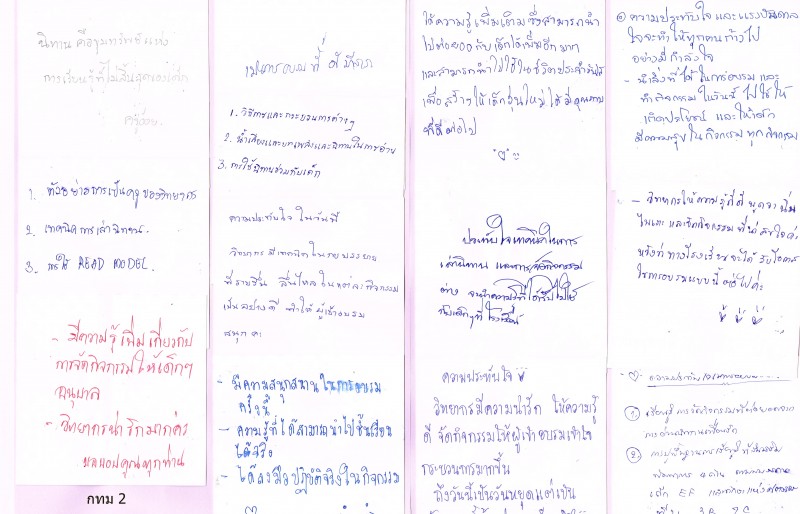 นิทาน คือขุมทรัพย์แห่ง
การเรียนรู้ที่ไม่สิ้นสุดของเด็ก
1. ตัวอย่างการเป็นครูของวิทยากร
2. เทคนิคการเล่านิทาน
3. การใช้ READ MODEL.
- มีความรู้เพิ่มเกี่ยวกับ
การจัดกิจกรรมให้เด็กๆ
อนุบาล
- วิทยากรน่ารักมากค่ะ
ขอขอบคุณทุกท่าน
กทม 2
1. วิธีการและกระบวนการต่างๆ
2. น้ำเสียงและบทเพลงและนิทานในการอ่าน
3. การใช้นิทานร่วมกับเด็ก
ความประทับใจในวันนี้
วิทยากรมีเทคนิคในการบรรยาย
ที่ราบรื่น ลื่นไหลในแต่ละกิจกรรม
เป็นอย่างดี ทำให้ผู้เข้าอบรม
สนุกค่ะ
- มีความสนุกสนานในการอบรม
ครั้งนี้
- ความรู้ที่ได้สามารถนำไปชั้นเรียน
ได้จริง
- ได้ลงมือปฏิบัติจริงในกิจกรรม
ได้ความรู้เพิ่มเติมซึ่งสามารถนำ
ไปต่อยอดกับเด็กได้เพิ่มอีกมาก
และสามารถนำไปใช้ในชีวิตประจำวันได้
เพื่อสร้างให้เด็กรุ่นใหม่ได้มีคุณภาพ
ที่ดีต่อไป
ประทับใจเทคนิคในการ
เล่านิทาน และการจัดกิจกรรม
ต่าง จะนำความรู้ที่ได้รับไปใช้
กับเด็กๆที่โรงเรียน
ความประทับใจ
วิทยากรมีความน่ารัก ให้ความรู้
ดี จัดกิจกรรมให้ผู้เข้าอบรมเข้าใจ
กระบวนการมากขึ้น
ถึงวันนี้เป็นวันหยุดแต่เป็น
ความประทับใจ และแรงบันดาล
ใจจะทำให้ทุกคนก้าวไป
อย่างมีกำลังใจ
- นำสิ่งที่ได้ในการอบรม และ
ทำกิจกรรมในวันนี้ ไปใช้ให้
เกิดประโยชน์ และให้เด็ก
มีความสุขในกิจกรรมทุกกิจกรรม
- วิทยากรให้ความรู้ที่ดี พูดจานิ่ม
ไพเราะ และจัดกิจกรรมที่น่าสนใจค่ะ
หวังว่าทางโรงเรียนจะได้รับโอกาส
ในการอบรมแบบนี้ต่อไปค่ะ
① เรียนรู้การจัดกิจกรรมที่
②
เด็ก EF